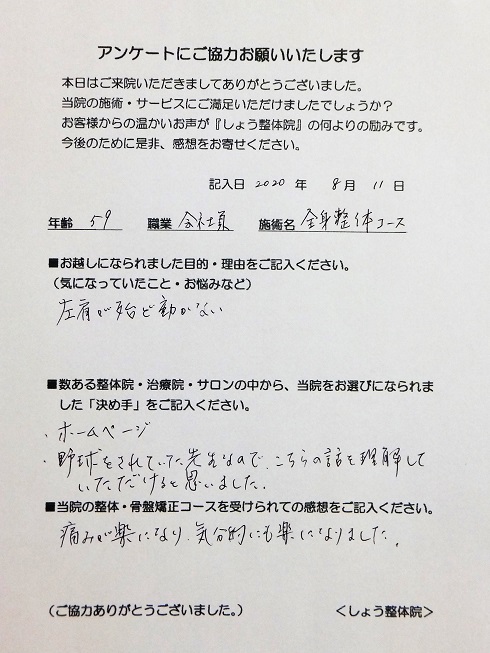 アンケートにご協力お願いいたします
本日はご来院いただきましてありがとうございました。
当院の施術・サービスにご満足いただけましたでしょうか？
お客様からの温かいお声が『しょう整体院』の何よりの励みです。
今後のために是非、感想をお寄せください。
記入日 2020 年 8 月 11 日
年齢 59 職業 会社員 施術名 全身整体コース
■お越しになられました目的・理由をご記入ください。
（気になっていたこと・お悩みなど）
左肩が殆ど動かない
■数ある整体院・治療院・サロンの中から、当院をお選びになられま
した「決め手」をご記入ください。
・ホームページ
・野球をされていた先生なので、こちらの話を理解して
いただけると思いました。
■当院の整体・骨盤矯正コースを受けられての感想をご記入ください。
痛みが楽になり、気分的にも楽になりました。
（ご協力ありがとうございました。） ＜しょう整体院＞